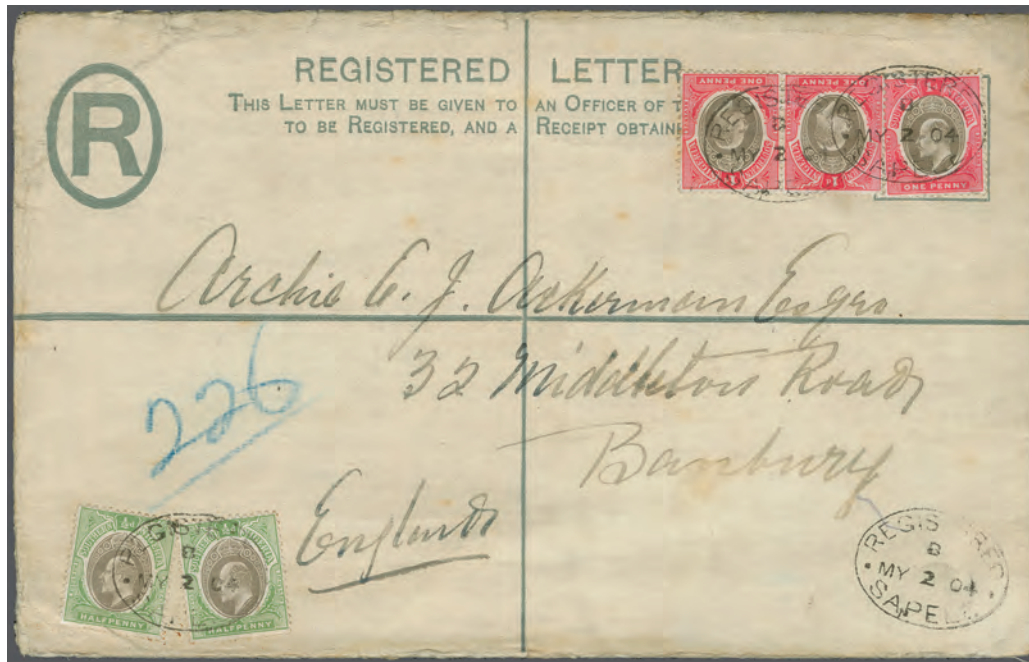 REGISTERED LETTER
THIS LETTER MUST BE GIVEN TO AN OFFICER OF
TO BE REGISTERED, AND A RECEIPT OBTAIN
R
ONE PENNY
ONE PENNY
ONE PENNY
MY 2 04
Archie E. J. Ackerman Esqre.
32 Middleton Road
Banbury
England
226
HALFPENNY
HALFPENNY
MY 2 04
REGISTERED
B
MY 2 04
SAPELE